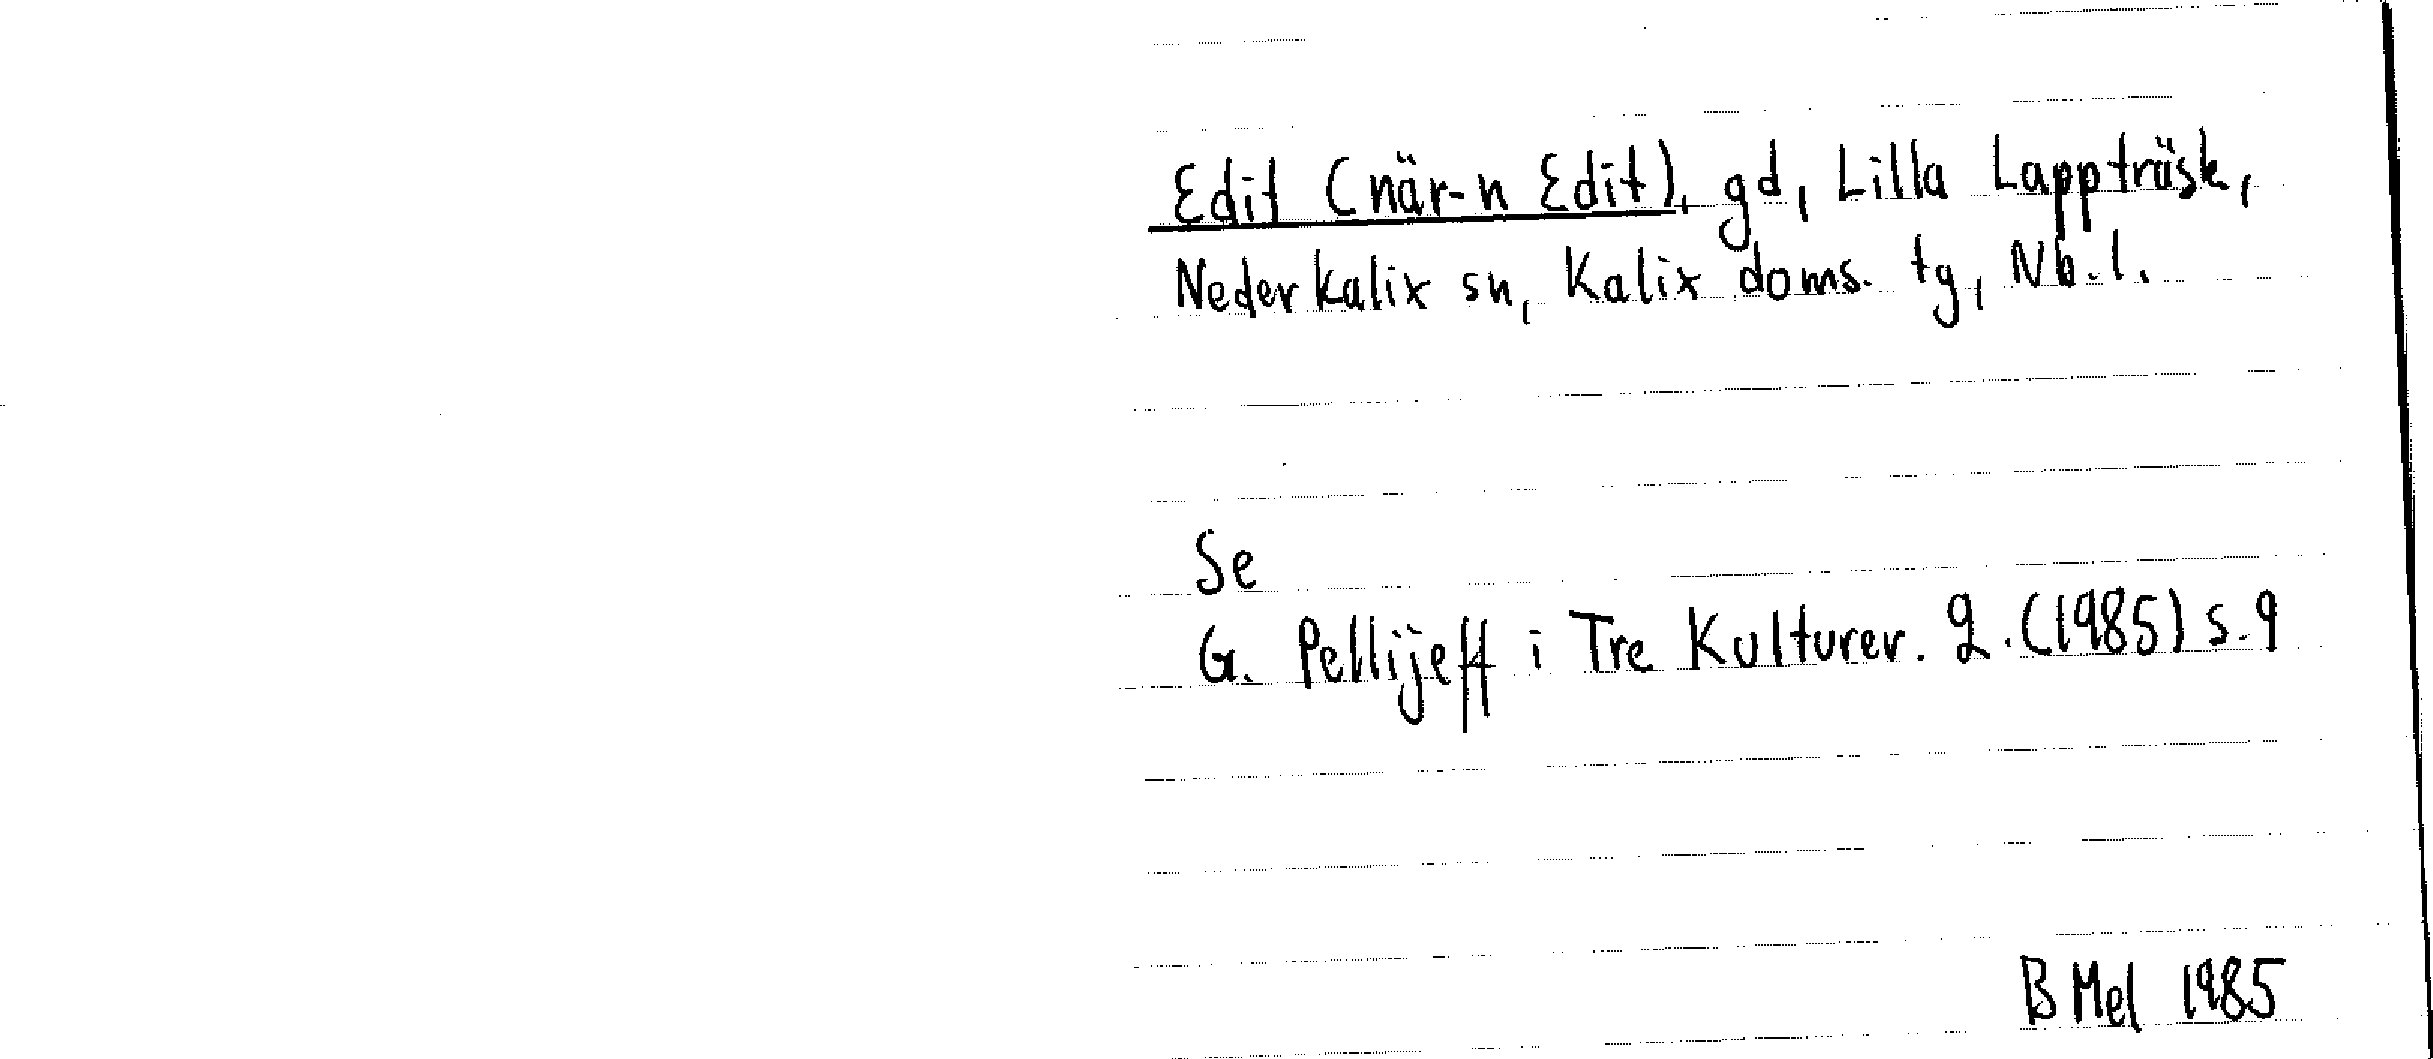 Edit (när-n Edit), gd, Lilla Lappträsk,
Nederkalix sn, Kalix doms. tg, Nb.l.
Se
G. Pellijeff i Tre Kulturer. 2.(1985) s.9
B Mel 1985